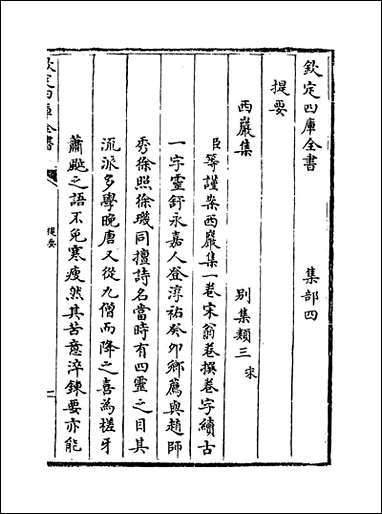 欽定四庫全書 集部四
提要
西巖集 別集類三 宋
臣等謹案西巖集一卷宋翁卷撰卷字續古
一字靈舒永嘉人登淳祐癸卯鄉薦與趙師
秀徐照徐璣同擅詩名當時有四靈之目其
流派多學晚唐又從九僧而降之喜為槎牙
蕭颯之語不免寒瘦然其苦意淬鍊要亦能
欽定四庫全書
提要